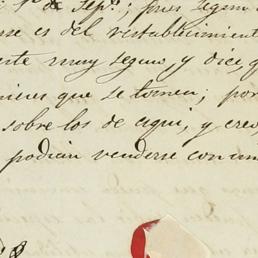 1º de Sepº.; pues seguн
se es del restablecimient
este muy seguro, y dice, q
nieves que se tomen; por
sobre los de aqui, y creo
podian venderse con un